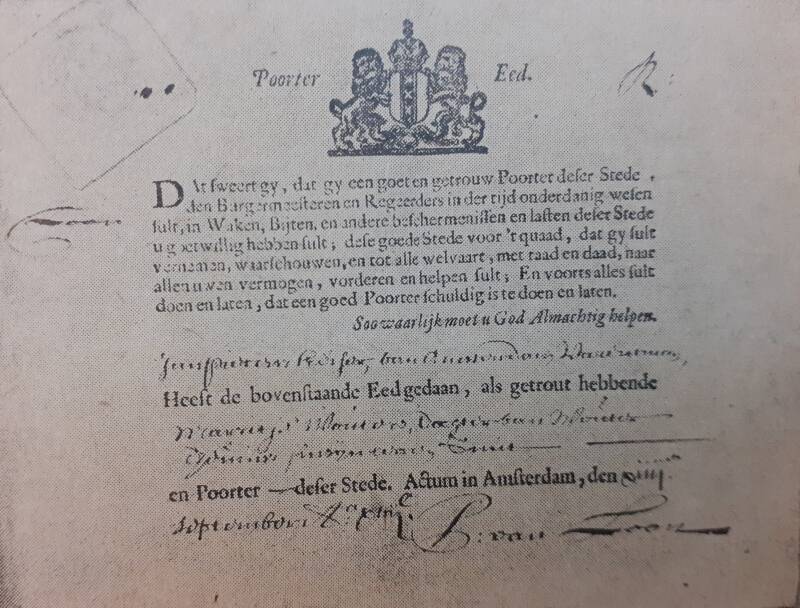 Poorter Eed. R:
DAt sweert gy, dat gy een goet en getrouw Poorter deser Stede,
den Burgermeesteren en Regeerders in der tijd onderdanig wesen
sult, in Waken, Bijten, en andere beschermenissen en lasten deser Stede
u goetwillig hebben sult; dese goede Stede voor 't quaad, dat gy sult
vernemen, waarschouwen, en tot alle welvaart, met raad en daad, naar
allen uwen vermogen, vorderen en helpen sult; En voorts alles sult
doen en laten, dat een goed Poorter schuldig is te doen en laten.
Soo waarlijk moet u God Almachtig helpen.
Loon
van Amsterdam
Heeft de bovenstaande Eed gedaan, als getrout hebbende
Marritje Wouters, Dogter van Wouter
en Poorter deser Stede. Actum in Amsterdam, den
September
P: van Loon